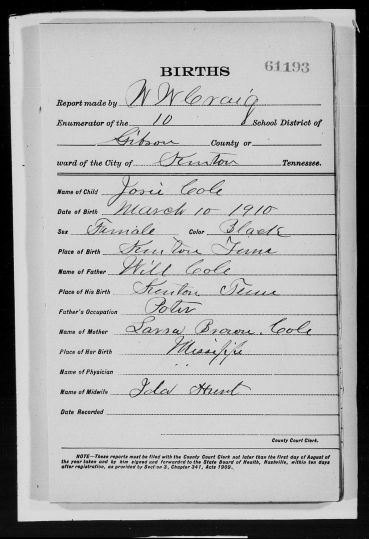 BIRTHS
61193
Report made by W W Craig
Enumerator of the 10 School District of
Gibson County or
ward of the City of Kenton Tennessee.
Name of Child Josie Cole
Date of Birth March 10 1910
Sex Female Color Black
Place of Birth Kenton Tenn
Name of Father Will Cole
Place of His Birth Kenton Tenn
Father's Occupation Poter
Name of Mother Brown Cole
Place of Her Birth Missippe
Name of Physician
Name of Midwife Ida Hunt
Date Recorded
County Court Clerk.
NOTE—These reports must be filed with the County Court Clerk not later than the first day of August of
the year taken and by him signed and forwarded to the State Board of Health, Nashville, within ten days
after registration, as provided by Section 3, Chapter 341, Acts 1909.